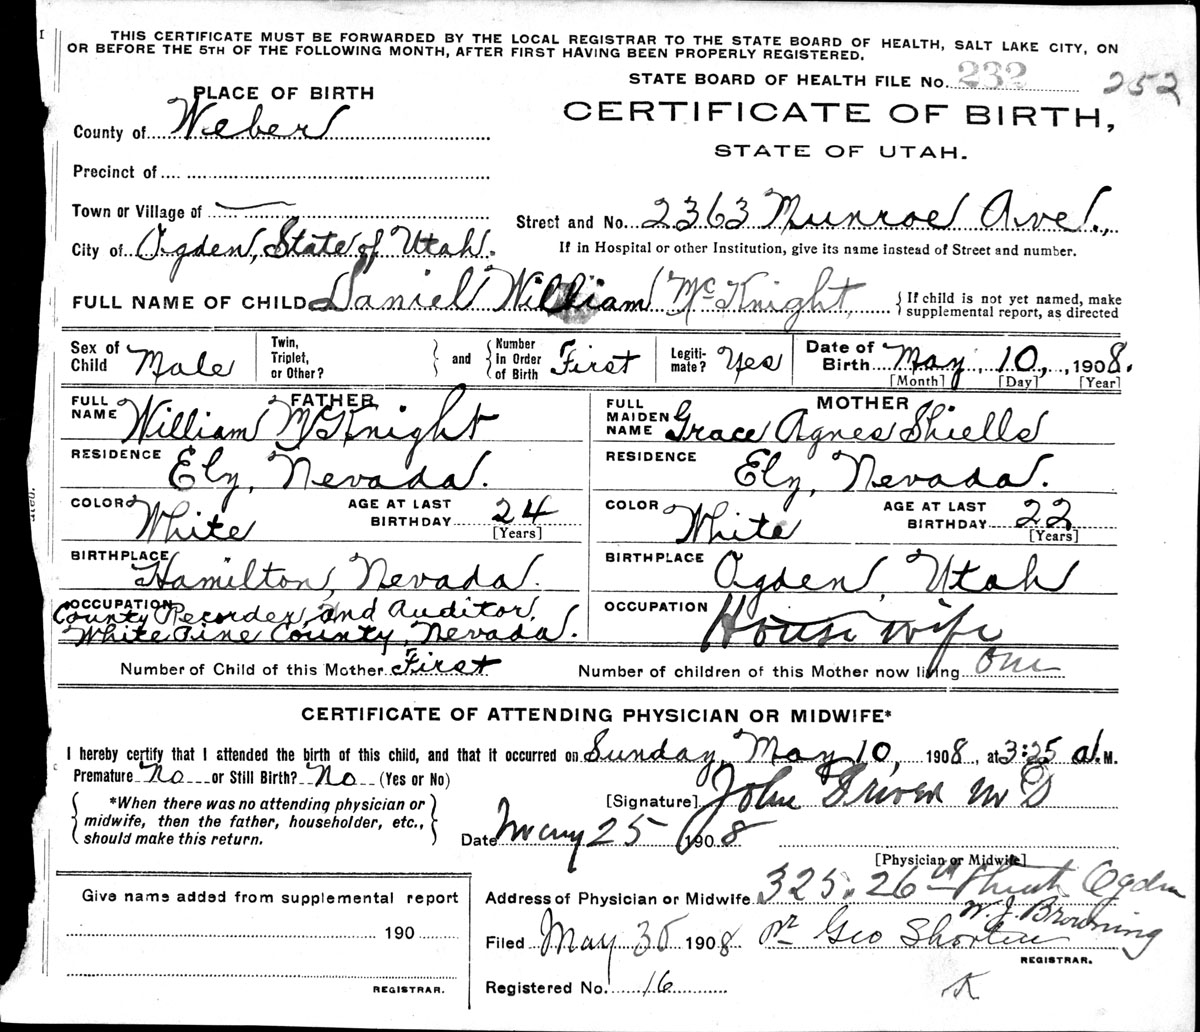 THIS CERTIFICATE MUST BE FORWARDED BY THE LOCAL REGISTRAR TO THE STATE BOARD OF HEALTH, SALT LAKE CITY, ON
OR BEFORE THE 5TH OF THE FOLLOWING MONTH, AFTER FIRST HAVING BEEN PROPERLY REGISTERED.
STATE BOARD OF HEALTH FILE No. 232 252
PLACE OF BIRTH
CERTIFICATE OF BIRTH,
STATE OF UTAH.
County of Weber
Precinct of
Town or Village of
Street and No. 2363 Munroe Ave.,
City of Ogden, State of Utah.
If in Hospital or other Institution, give its name instead of Street and number.
FULL NAME OF CHILD Daniel William McKnight, {If child is not yet named, make
supplemental report, as directed
Sex of Child Male Twin, Triplet, or Other? } and { Number in Order of Birth First Legiti-mate? Yes Date of Birth May 10, , 1908.
[Month] [Day] [Year]
FATHER
FULL NAME William McKnight
RESIDENCE Ely, Nevada.
COLOR White AGE AT LAST BIRTHDAY 24 [Years]
BIRTHPLACE Hamilton, Nevada.
OCCUPATION County Recorder, and Auditor,
White Pine County, Nevada.
MOTHER
FULL MAIDEN NAME Grace Agnes Shiells
RESIDENCE Ely, Nevada.
COLOR White AGE AT LAST BIRTHDAY 22 [Years]
BIRTHPLACE Ogden, Utah
OCCUPATION House wife
Number of Child of this Mother First Number of children of this Mother now living one
CERTIFICATE OF ATTENDING PHYSICIAN OR MIDWIFE*
I hereby certify that I attended the birth of this child, and that it occurred on Sunday, May 10, 1908, at 3:25 a.M.
Premature No or Still Birth? No (Yes or No)
{ *When there was no attending physician or
midwife, then the father, householder, etc.,
should make this return. }
[Signature] John Driver MD
Date May 25 1908
[Physician or Midwife]
Address of Physician or Midwife 325. 26th Ogden
Give name added from supplemental report
190
REGISTRAR.
W. J. Browning
Filed May 30 1908 pr Geo Shorten
REGISTRAR.
Registered No. 16
K